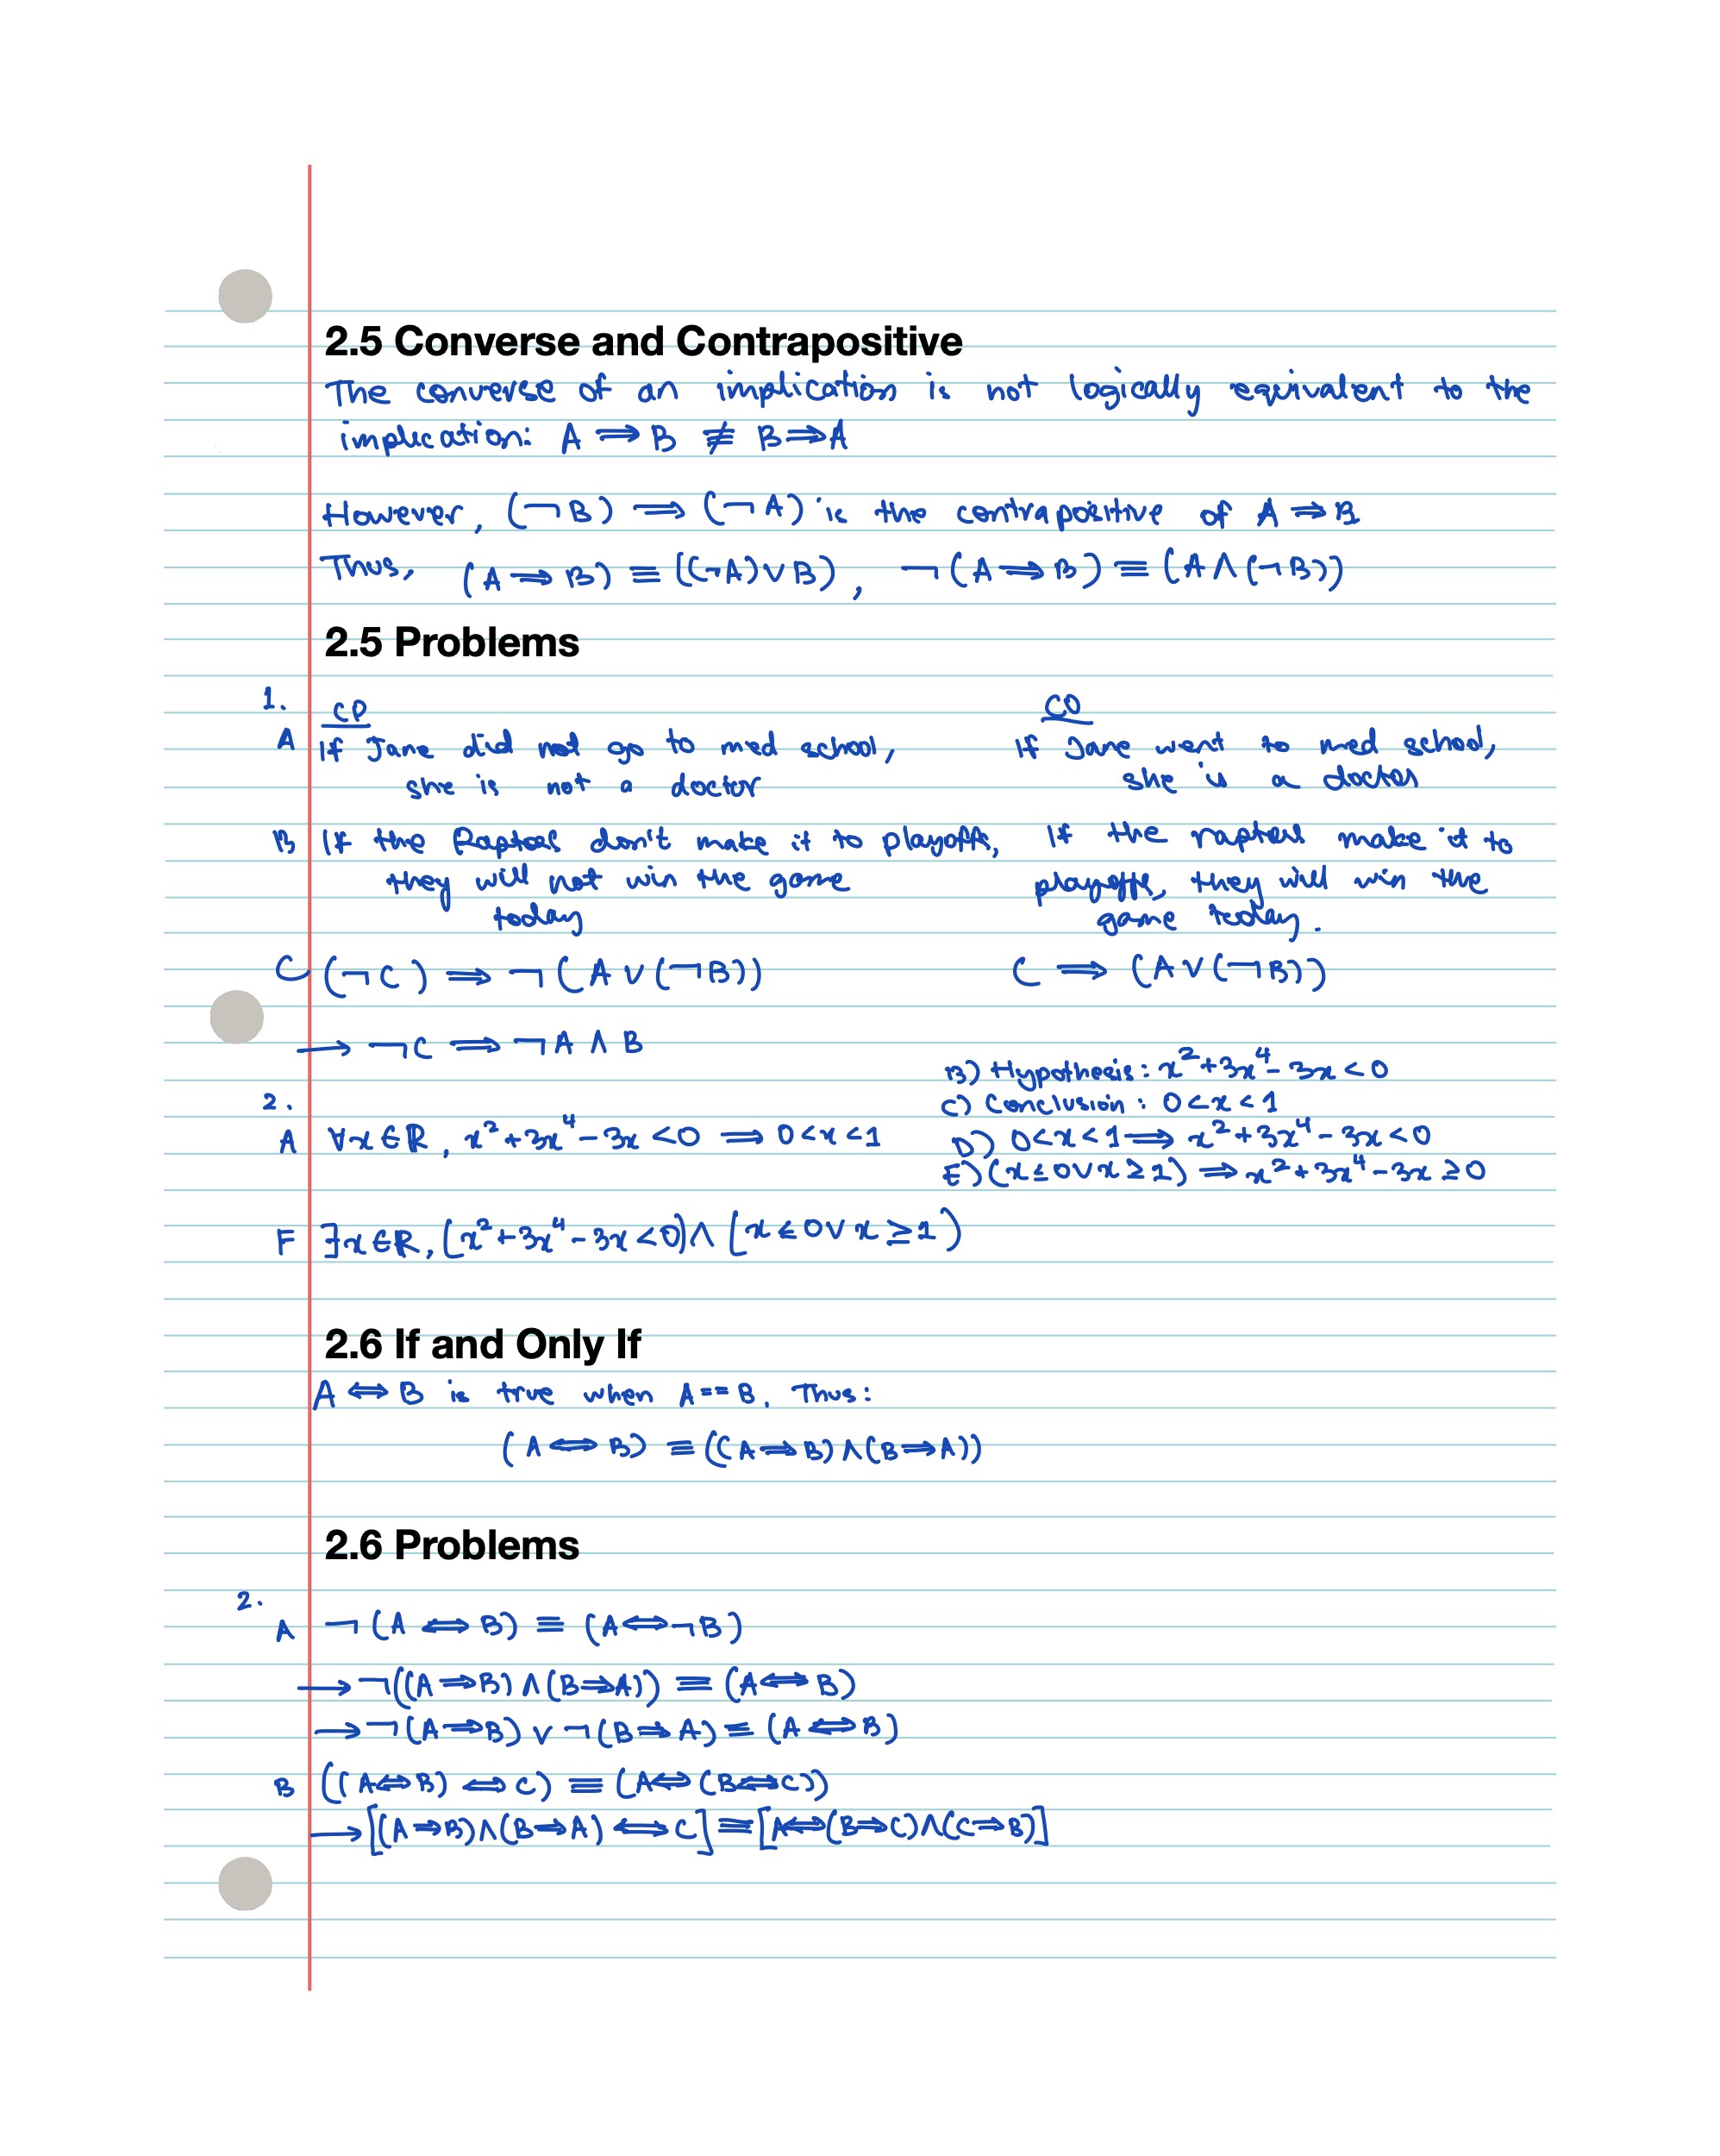 2.5 Converse and Contrapositive
The converse of an implication is not logically equivalent to the
implication: A ⟹ B ≢ B ⟹ A
However, (¬B) ⟹ (¬A) is the contrapositive of A ⟹ B
Thus, (A ⟹ B) ≡ ((¬A) ∨ B), ¬(A ⟹ B) ≡ (A ∧ (¬B))
2.5 Problems
1.
CP
A If Jane did not go to med school,
she is not a doctor
CO
If Jane went to med school,
she is a doctor
B If the Raptors don't make it to playoffs,
they will not win the game
today
If the raptors make it to
playoffs, they will win the
game today.
C (¬C) ⟹ ¬(A ∨ (¬B))
C ⟹ (A ∨ (¬B))
→ ¬C ⟹ ¬A ∧ B
2.
A ∀x∈ℝ, x²+3x⁴-3x<0 ⟹ 0<x<1
B) Hypothesis: x²+3x⁴-3x<0
C) Conclusion: 0<x<1
D) 0<x<1 ⟹ x²+3x⁴-3x<0
E) (x≤0∨x≥1) ⟹ x²+3x⁴-3x≥0
F ∃x∈ℝ, (x²+3x⁴-3x<0)∧(x≤0∨x≥1)
2.6 If and Only If
A ⟺ B is true when A==B. Thus:
(A ⟺ B) ≡ ((A ⟹ B) ∧ (B ⟹ A))
2.6 Problems
2.
A ¬(A ⟺ B) ≡ (A ⟺ ¬B)
→ ¬((A ⟹ B) ∧ (B ⟹ A)) ≡ (A ⟺ B)
→ ¬(A ⟹ B) ∨ ¬(B ⟹ A) ≡ (A ⟺ B)
B ((A ⟺ B) ⟺ C) ≡ (A ⟺ (B ⟺ C))
→ [(A ⟹ B) ∧ (B ⟹ A) ⟺ C] ≡ [A ⟺ (B ⟹ C) ∧ (C ⟹ B)]